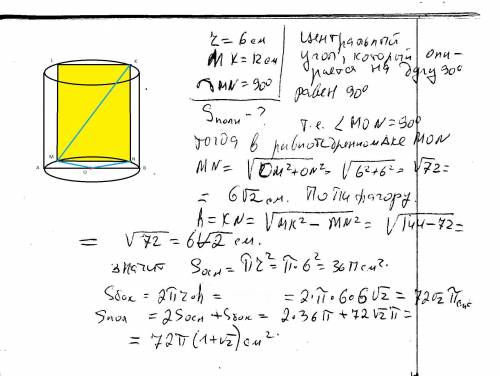 L K
M N
A O B
r = 6 см
MK = 12 см
◠MN = 90°
Sполн - ?
Центральный
угол, который опи-
рается на дугу 90°
равен 90°
т.е. ∠MON = 90°
тогда в равнобедренном △ке MON
MN = √OM²+ON² = √6²+6² = √72 =
= 6√2 см. По Пифагору.
h = KN = √MK² - MN² = √144-72 =
= √72 = 6√2 см.
значит Sосн = πr² = π·6² = 36π см².
Sбок = 2πr·h = = 2·π·6·6√2 = 72√2 π см²
Sпол = 2Sосн + Sбок = 2·36π + 72√2π =
= 72π(1+√2) см².